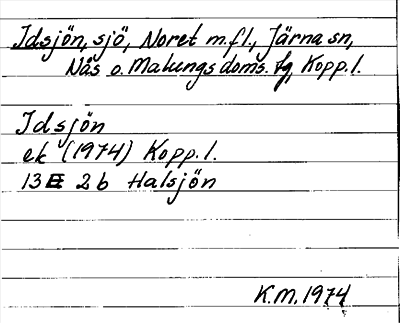 Idsjön, sjö, Noret m.fl., Järna sn,
Nås o. Malungs doms. tg, Kopp. l.
Idsjön
ek (1974) Kopp. l.
13E 2b Halsjön
K.M. 1974